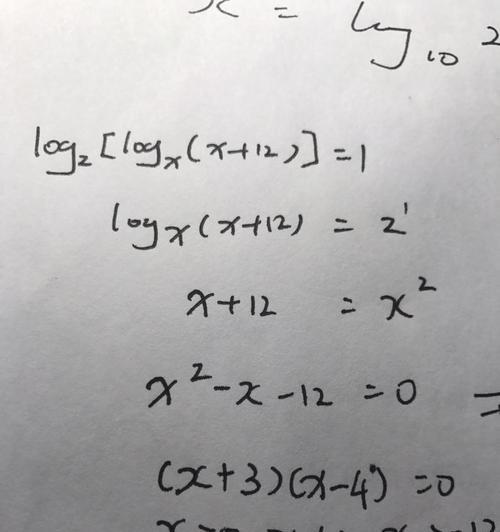 x = log₁₀ 2
log₂[logₓ(x+12)] = 1
logₓ(x+12) = 2¹
x+12 = x²
x²-x-12 = 0 =
(x+3)(x-4) = 0